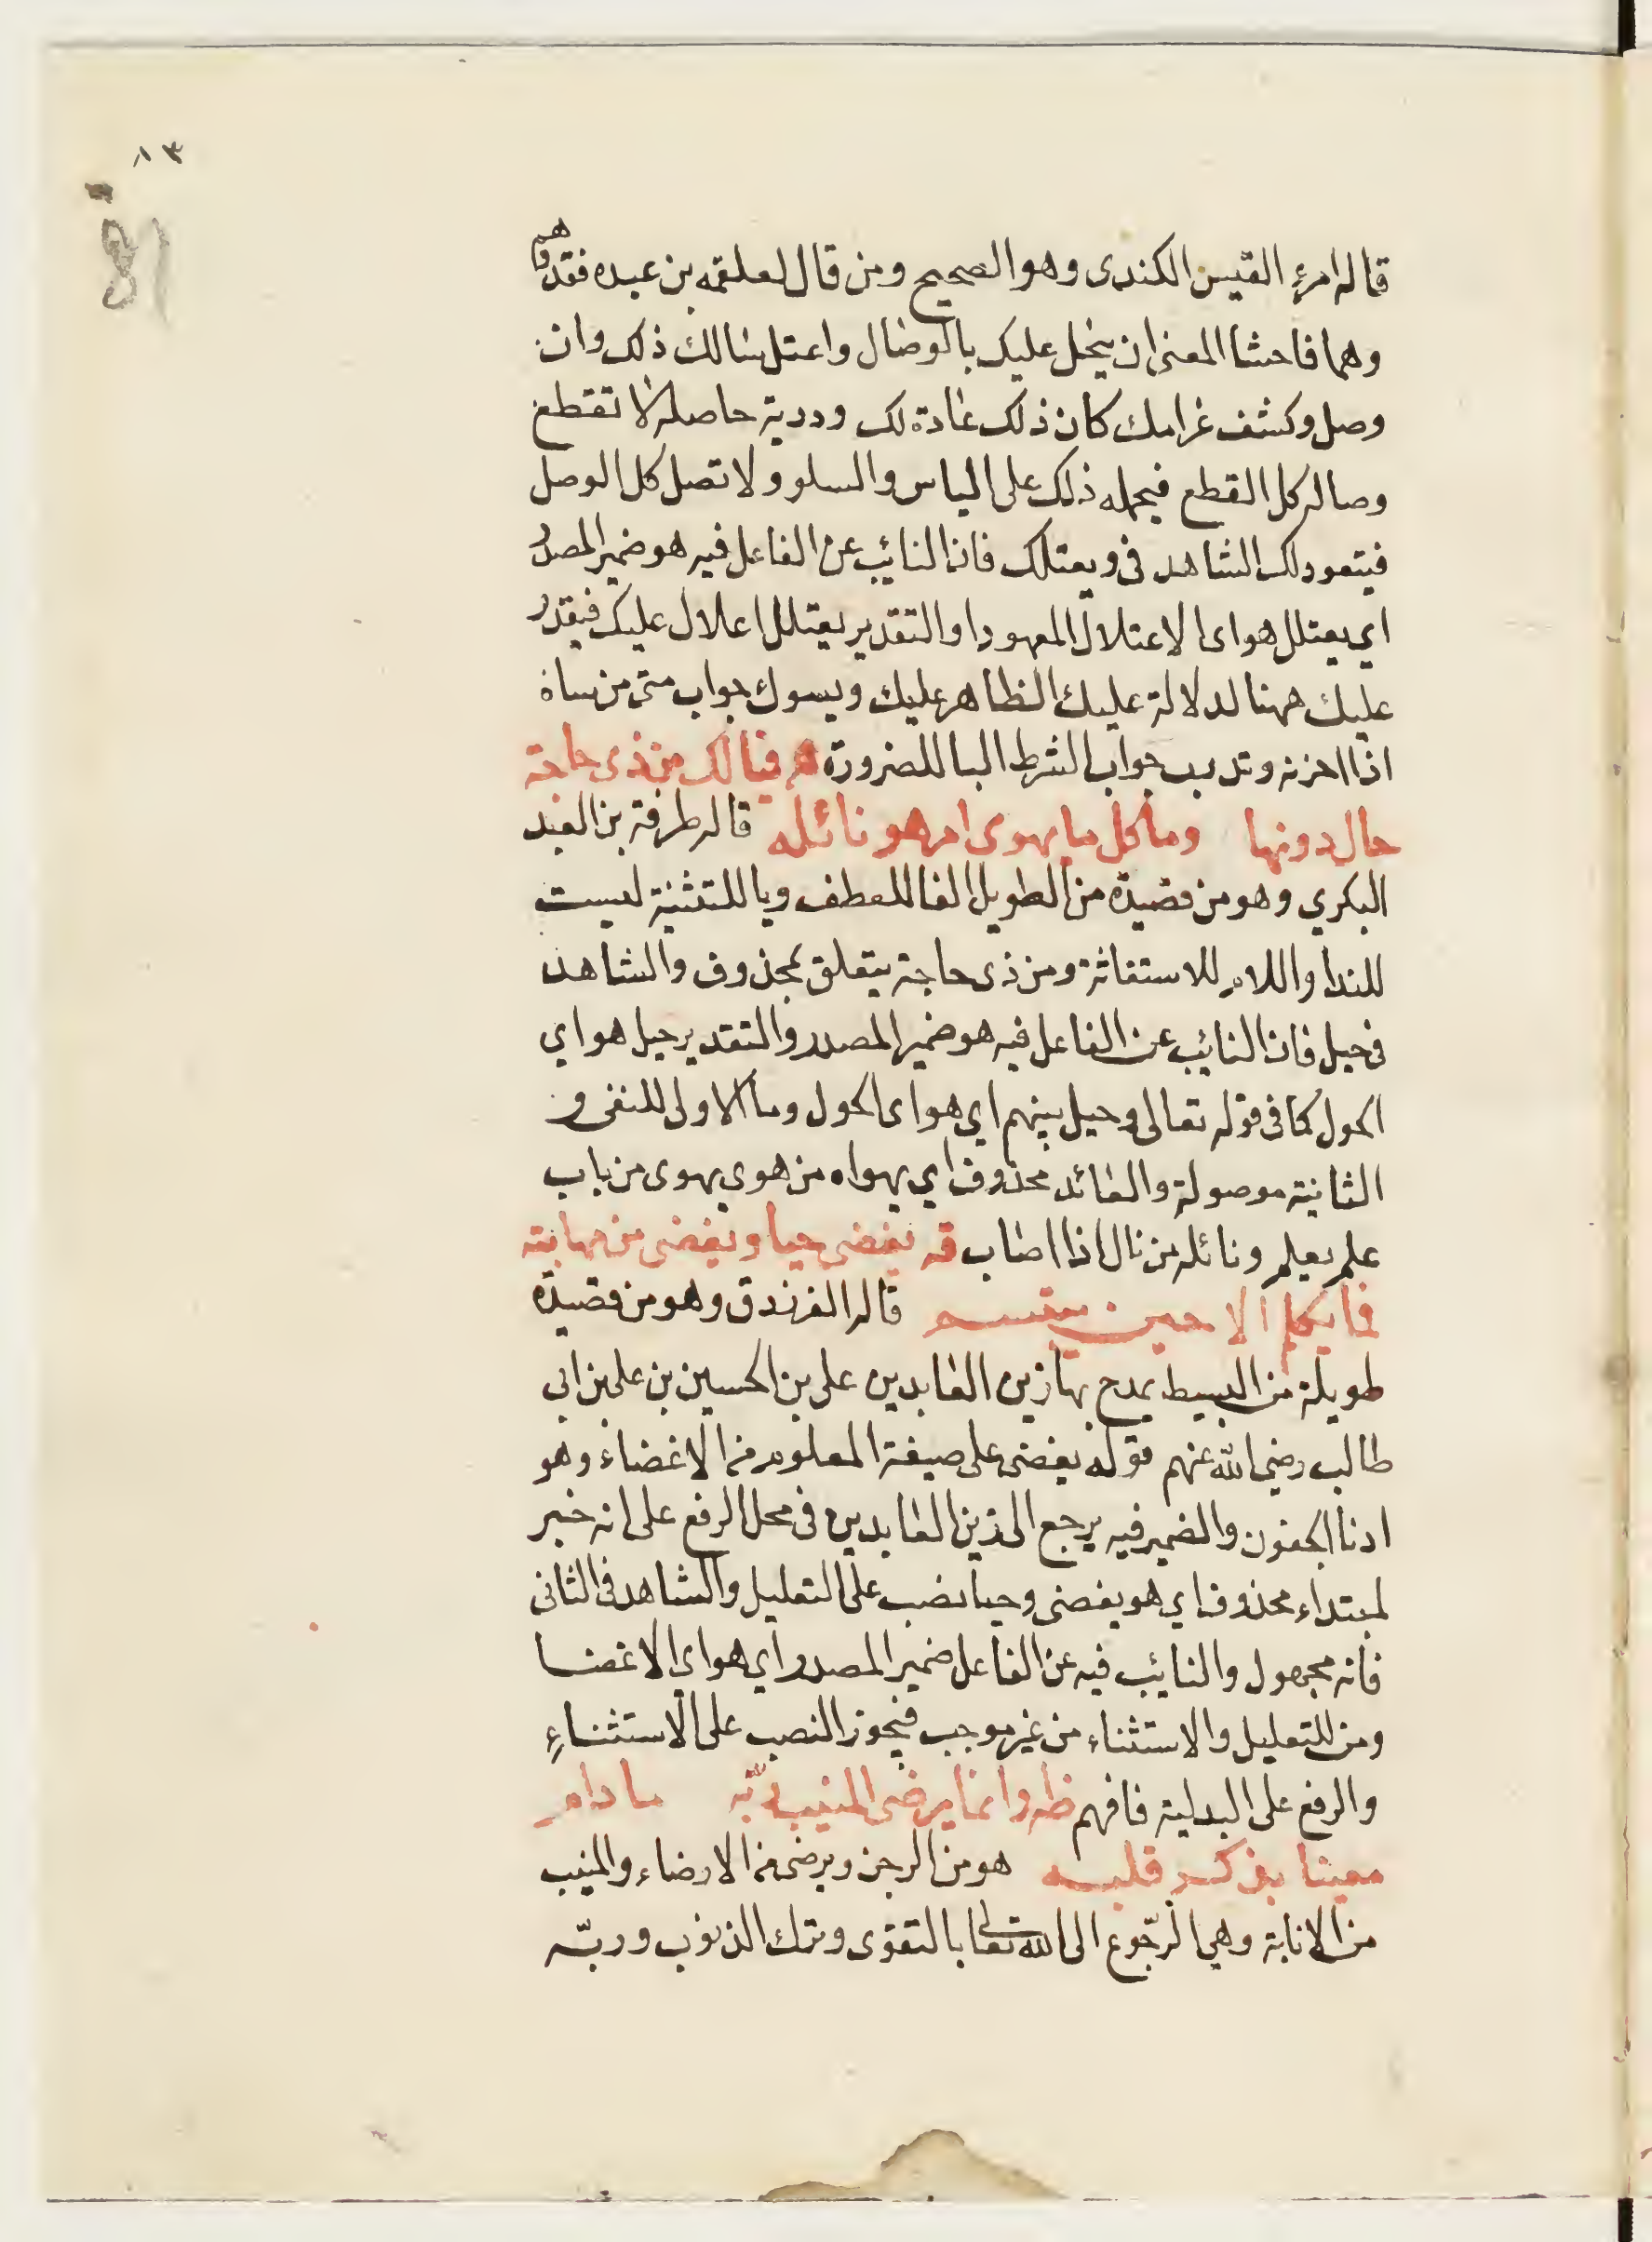 ٨٣
81
قاله امرء القيس الكندى وهو الصحيح ومن قال لعلقمه بن عبده فقد وهم
وهما فاحشا المعنى ان يبخل عليك بالوصال واعتل سالك ذلك وان
وصل وكشف غرامك كان ذلك عادة لك ودربة حاصلة لا تقطع
وصاله كل القطع فيحمله ذلك على الياس والسلو ولا تصل كل الوصل
فيتعود لك الشاهد فى ويعتلل فان النائب عن الفاعل فيه هو ضمير المصدر
اي يعتلل هو اى الاعتلال المعهود او التقدير يعتلل اعلال عليك فيقدر
عليك ههنا لدلالة عليك الظاهر عليك ويسوك جواب متى من ساه
اذا احزنه وتدرب جواب الشرط اليا للضرورة فيا لك من ذى حاجة
حال دونها وما كل ما يهوى امر هو نائله قاله طرفة بن العبد
البكري وهو من قصيدة من الطويل الفا للعطف ويا للتثنية ليست
للندا واللام للاستغاثة ومن ذى حاجة يتعلق بمحذوف والشاهد
فى حيل فان النائب عن الفاعل فيه هو ضمير المصدر والتقدير حيل هو اي
الحول كما فى قوله تعالى وحيل بينهم اي هو اى الحول وما الاولى للنفى و
الثانية موصولة والعائد محذوف اي يهواه من هوي يهوى من باب
علم يعلم ونائله من نال اذا اصاب قه يغضى حيا ويغضى من مهابته
فما يكلم الا حين يبتسم قاله الفرزدق وهو من قصيدة
طويلة من البسيط يمدح بها زين العابدين على بن الحسين بن على بن ابى
طالب رضى الله عنهم قوله يغضى على صيغة المعلوم من الاغضاء وهو
ادنا الجفون والضمير فيه يرجع الى زين العابدين فى محل الرفع على انه خبر
لمبتداء محذوف اي هو يغضى وحيا نصب على التعليل والشاهد فى الثانى
فانه مجهول والنائب فيه عن الفاعل ضمير المصدر اي هو اي الاغضا
ومن للتعليل والاستثناء من غير موجب فيجوز النصب على الاستثناء
والرفع على البدلية فافهم ظه وانما يرضى المنيب ربّه ما دام
معينا بذكر قلبه هو من الرجز ويرضى من الارضاء والمنيب
من الانابة وهي الرجوع الى الله تعالى بالتقوى وترك الذنوب وربّه